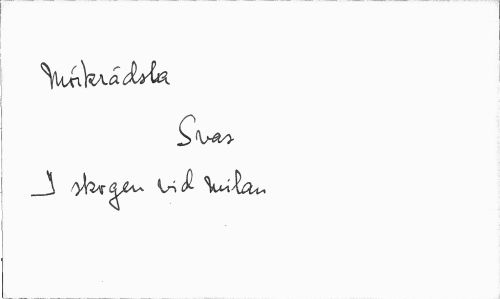 Mörkrädska
Svar
I skogen vid milan